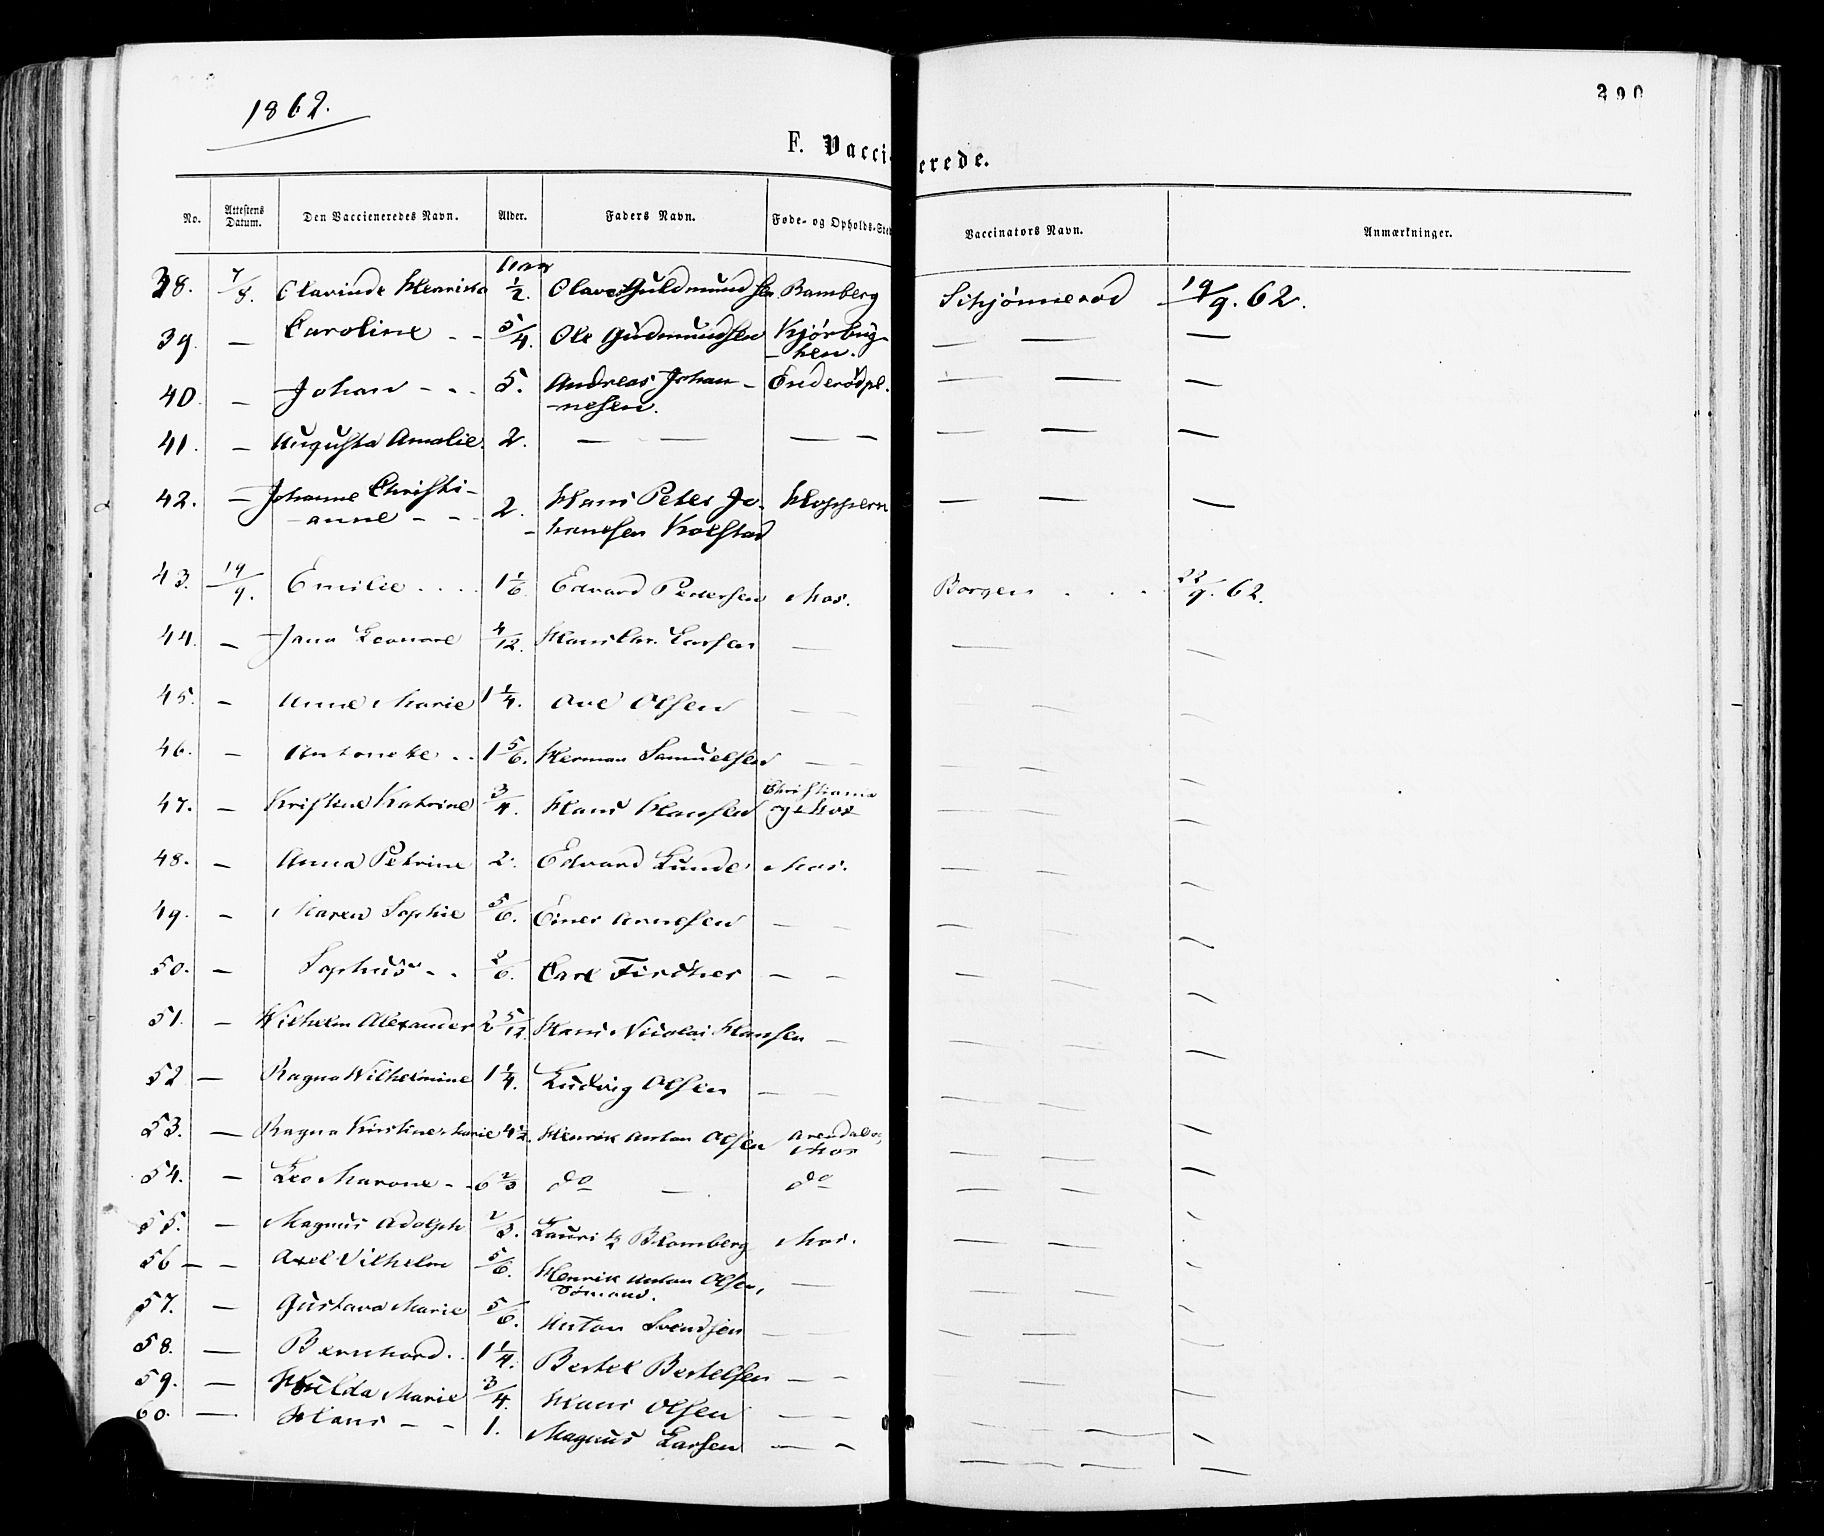 1862.
290
F. Vaccinerede.
No. Attestens Datum. Den Vaccieneredes Navn. Alder. Faders Navn. Føde- og Opholds-Sted Vaccinators Navn. Anmærkninger.
Aar
38. 7/8. Olavinde 1/2. Olaves Guldmundsen Ramberg Schjønnerød 19/9. 62.
39. — Caroline - - 5/4. Ole Gudmundsen Kjørbug- — — —
hen.
40. — Johan - - - 5. Andreas Johan- Enderødpl. — — —
-nesen.
41. — Augusta Amalie. 2. — — — — — — —
42. — Johanne Christi- 2. Hans Peter Jo- Kloppern — — —
-anne - - - -hansen Kolstad
43. 19/9. Emilie . . . . 1 1/6. Edvard Pedersen Mos. Borgen . . . 22/9. 62.
44. — Jana Leonore 4/12. Hans Chr. Larsen — — —
45. — Anne Marie 1 1/4. Ove Olsen — — — — —
46. — Antonete . . 1 5/6. Herman Samuelsen — — — — —
47. — Kristine Katrine 3/4. Hans Hansen Christiania — — —
og Mos
48. — Anna Petrine 2. Edvard Lunde Mos. — — —
49. — Maren Sophie 5/6. Einer Arnesen — — — — —
50. — Sophus - . 2/6. Carl Fischer — — — — —
51. — Wilhelm Alexander 2 5/12. Hans Nicolai Hansen — — — —
52 — Ragna Wilhelmine 1 1/4. Ludvig Olsen — — — — —
53. — Ragna Kristine Marie 4 1/2. Henrik Anton Olsen Arendal og — — —
Mos
54. — Leo Marone - - 6 2/3 do — do — — —
55. — Magnus Adolph 2/3. Lauritz Blomberg Mos. — — —
56 — — Axel Vilhelm 5/6. Henrik Anton Olsen, — — — —
Sømand.
57. — Gustava Marie 5/6. Anton Svendsen — — — — —
58. — Bernhard . . 1 1/4. Bertel Bertelsen — — — — —
59. — Hulda Marie 3/4. Hans Olsen — — — — —
60. — Hans - - 1. Magnus Larsen — — — — —